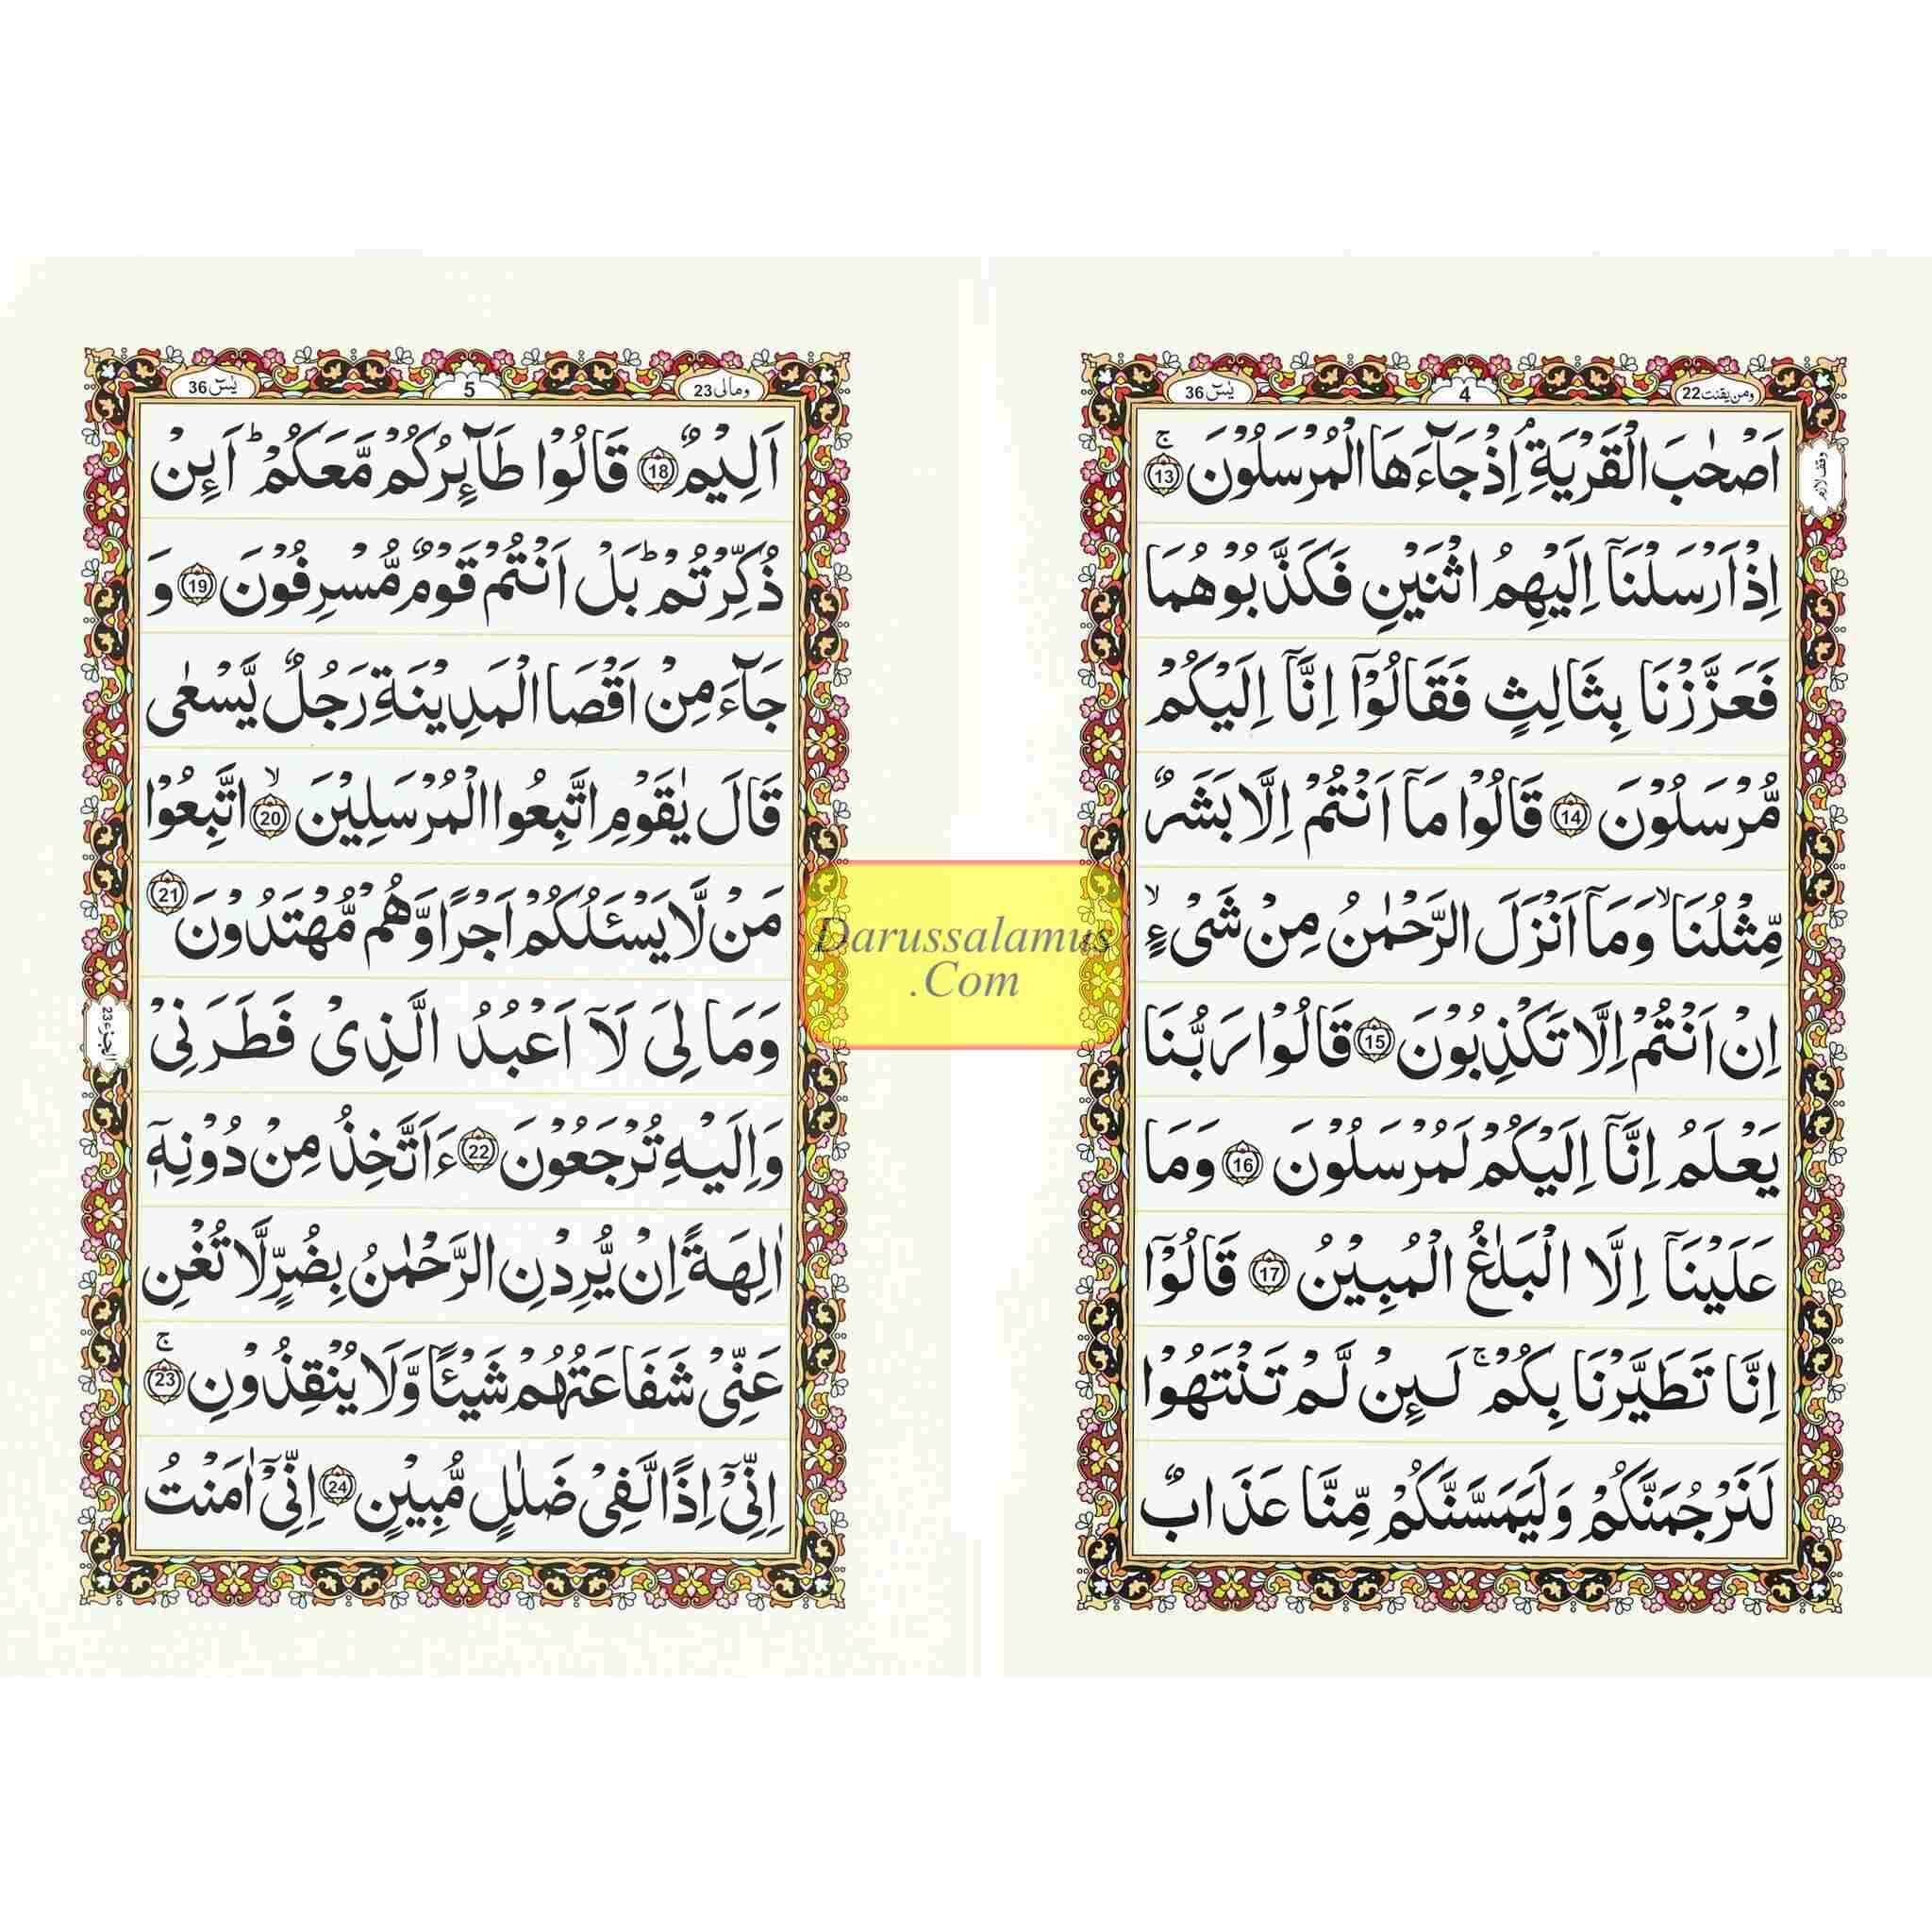 ومن یقنت 22
4
یٰسٓ 36
وقف لازم
اَصْحٰبَ الْقَرْيَةِ ۘ اِذْ جَآءَهَا الْمُرْسَلُوْنَ ۚ 13
اِذْ اَرْسَلْنَآ اِلَيْهِمُ اثْنَيْنِ فَكَذَّبُوْهُمَا
فَعَزَّزْنَا بِثَالِثٍ فَقَالُوْٓا اِنَّآ اِلَيْكُمْ
مُّرْسَلُوْنَ 14 قَالُوْا مَآ اَنْتُمْ اِلَّا بَشَرٌ
مِّثْلُنَا ۙ وَمَآ اَنْزَلَ الرَّحْمٰنُ مِنْ شَىْءٍ ۙ
اِنْ اَنْتُمْ اِلَّا تَكْذِبُوْنَ 15 قَالُوْا رَبُّنَا
يَعْلَمُ اِنَّآ اِلَيْكُمْ لَمُرْسَلُوْنَ 16 وَمَا
عَلَيْنَآ اِلَّا الْبَلٰغُ الْمُبِيْنُ 17 قَالُوْٓا
اِنَّا تَطَيَّرْنَا بِكُمْ ۚ لَئِنْ لَّمْ تَنْتَهُوْا
لَنَرْجُمَنَّكُمْ وَلَيَمَسَّنَّكُمْ مِّنَّا عَذَابٌ
ومالی 23
5
یٰسٓ 36
اَلِيْمٌ 18 قَالُوْا طَآئِرُكُمْ مَّعَكُمْ ؕ اَئِنْ
ذُكِّرْتُمْ ؕ بَلْ اَنْتُمْ قَوْمٌ مُّسْرِفُوْنَ 19 وَ
جَآءَ مِنْ اَقْصَا الْمَدِيْنَةِ رَجُلٌ يَّسْعٰى
قَالَ يٰقَوْمِ اتَّبِعُوا الْمُرْسَلِيْنَ ۙ 20 اتَّبِعُوْا
مَنْ لَّا يَسْـَٔلُكُمْ اَجْرًا وَّهُمْ مُّهْتَدُوْنَ 21
وَمَا لِىَ لَآ اَعْبُدُ الَّذِىْ فَطَرَنِىْ
وَاِلَيْهِ تُرْجَعُوْنَ 22 ءَاَتَّخِذُ مِنْ دُوْنِهٖٓ
اٰلِهَةً اِنْ يُّرِدْنِ الرَّحْمٰنُ بِضُرٍّ لَّا تُغْنِ
عَنِّىْ شَفَاعَتُهُمْ شَيْـًٔا وَّلَا يُنْقِذُوْنِ ۚ 23
اِنِّىْٓ اِذًا لَّفِىْ ضَلٰلٍ مُّبِيْنٍ 24 اِنِّىْٓ اٰمَنْتُ
الجزء 23
Darussalamus
.Com